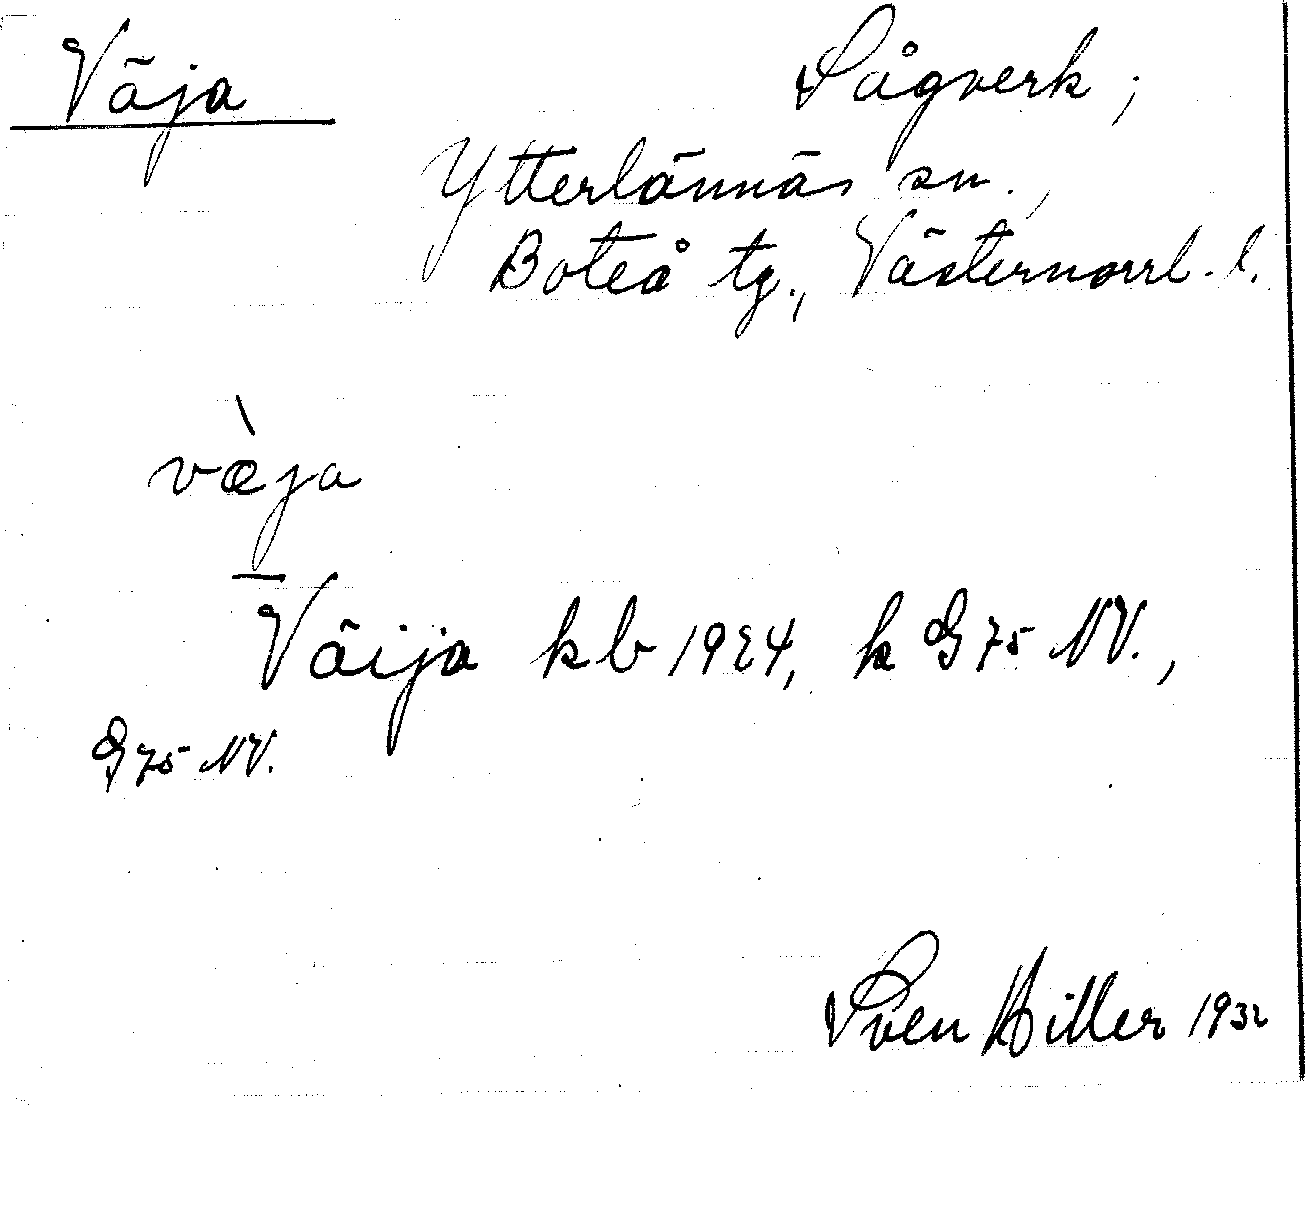 Väja Sågverk;
Ytterlännäs sn.,
Boteå tg., Västernorrl. l.
væ̀ja
Väija kb 1924, k G 75 NV.,
G 75 NV.
Sven Hiller 1932